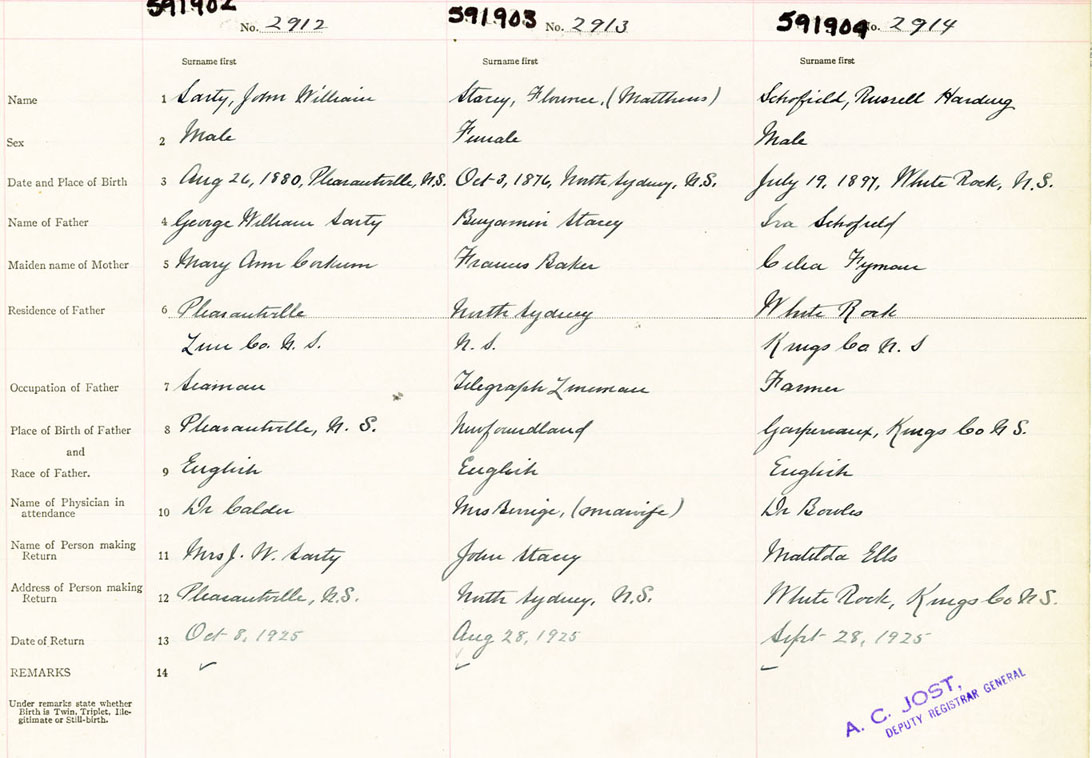 591902 No. 2912 591903 No. 2913 591904 No. 2914
Surname first Surname first Surname first
Name 1 Sarty, John William Stacey, Florence, (Matthews) Schofield, Russell Harding
Sex 2 Male Female Male
Date and Place of Birth 3 Aug 26, 1880, Pleasantville, N.S. Oct 3, 1876, North Sydney, N.S. July 19, 1897, White Rock, N.S.
Name of Father 4 George William Sarty Benjamin Stacey Ira Schofield
Maiden name of Mother 5 Mary Ann Corkum Frances Baker Celia
Residence of Father 6 Pleasantville North Sydney White Rock
Lun Co. N. S. N. S. Kings Co N. S
Occupation of Father 7 Seaman Telegraph Lineman Farmer
Place of Birth of Father 8 Pleasantville, N. S. Newfoundland Gaspereaux, Kings Co N S.
and
Race of Father. 9 English English English
Name of Physician in
attendance 10 Dr Calder Mrs (midwife) Dr Bowles
Name of Person making
Return 11 Mrs J. W. Sarty John Stacey Matilda Ells
Address of Person making
Return 12 Pleasantville, N.S. North Sydney, N.S. White Rock, Kings Co N.S.
Date of Return 13 Oct 8, 1925 Aug 28, 1925 Sept 28, 1925
REMARKS 14
Under remarks state whether
Birth is Twin, Triplet, Ille-
gitimate or Still-birth.
A. C. JOST,
DEPUTY REGISTRAR GENERAL